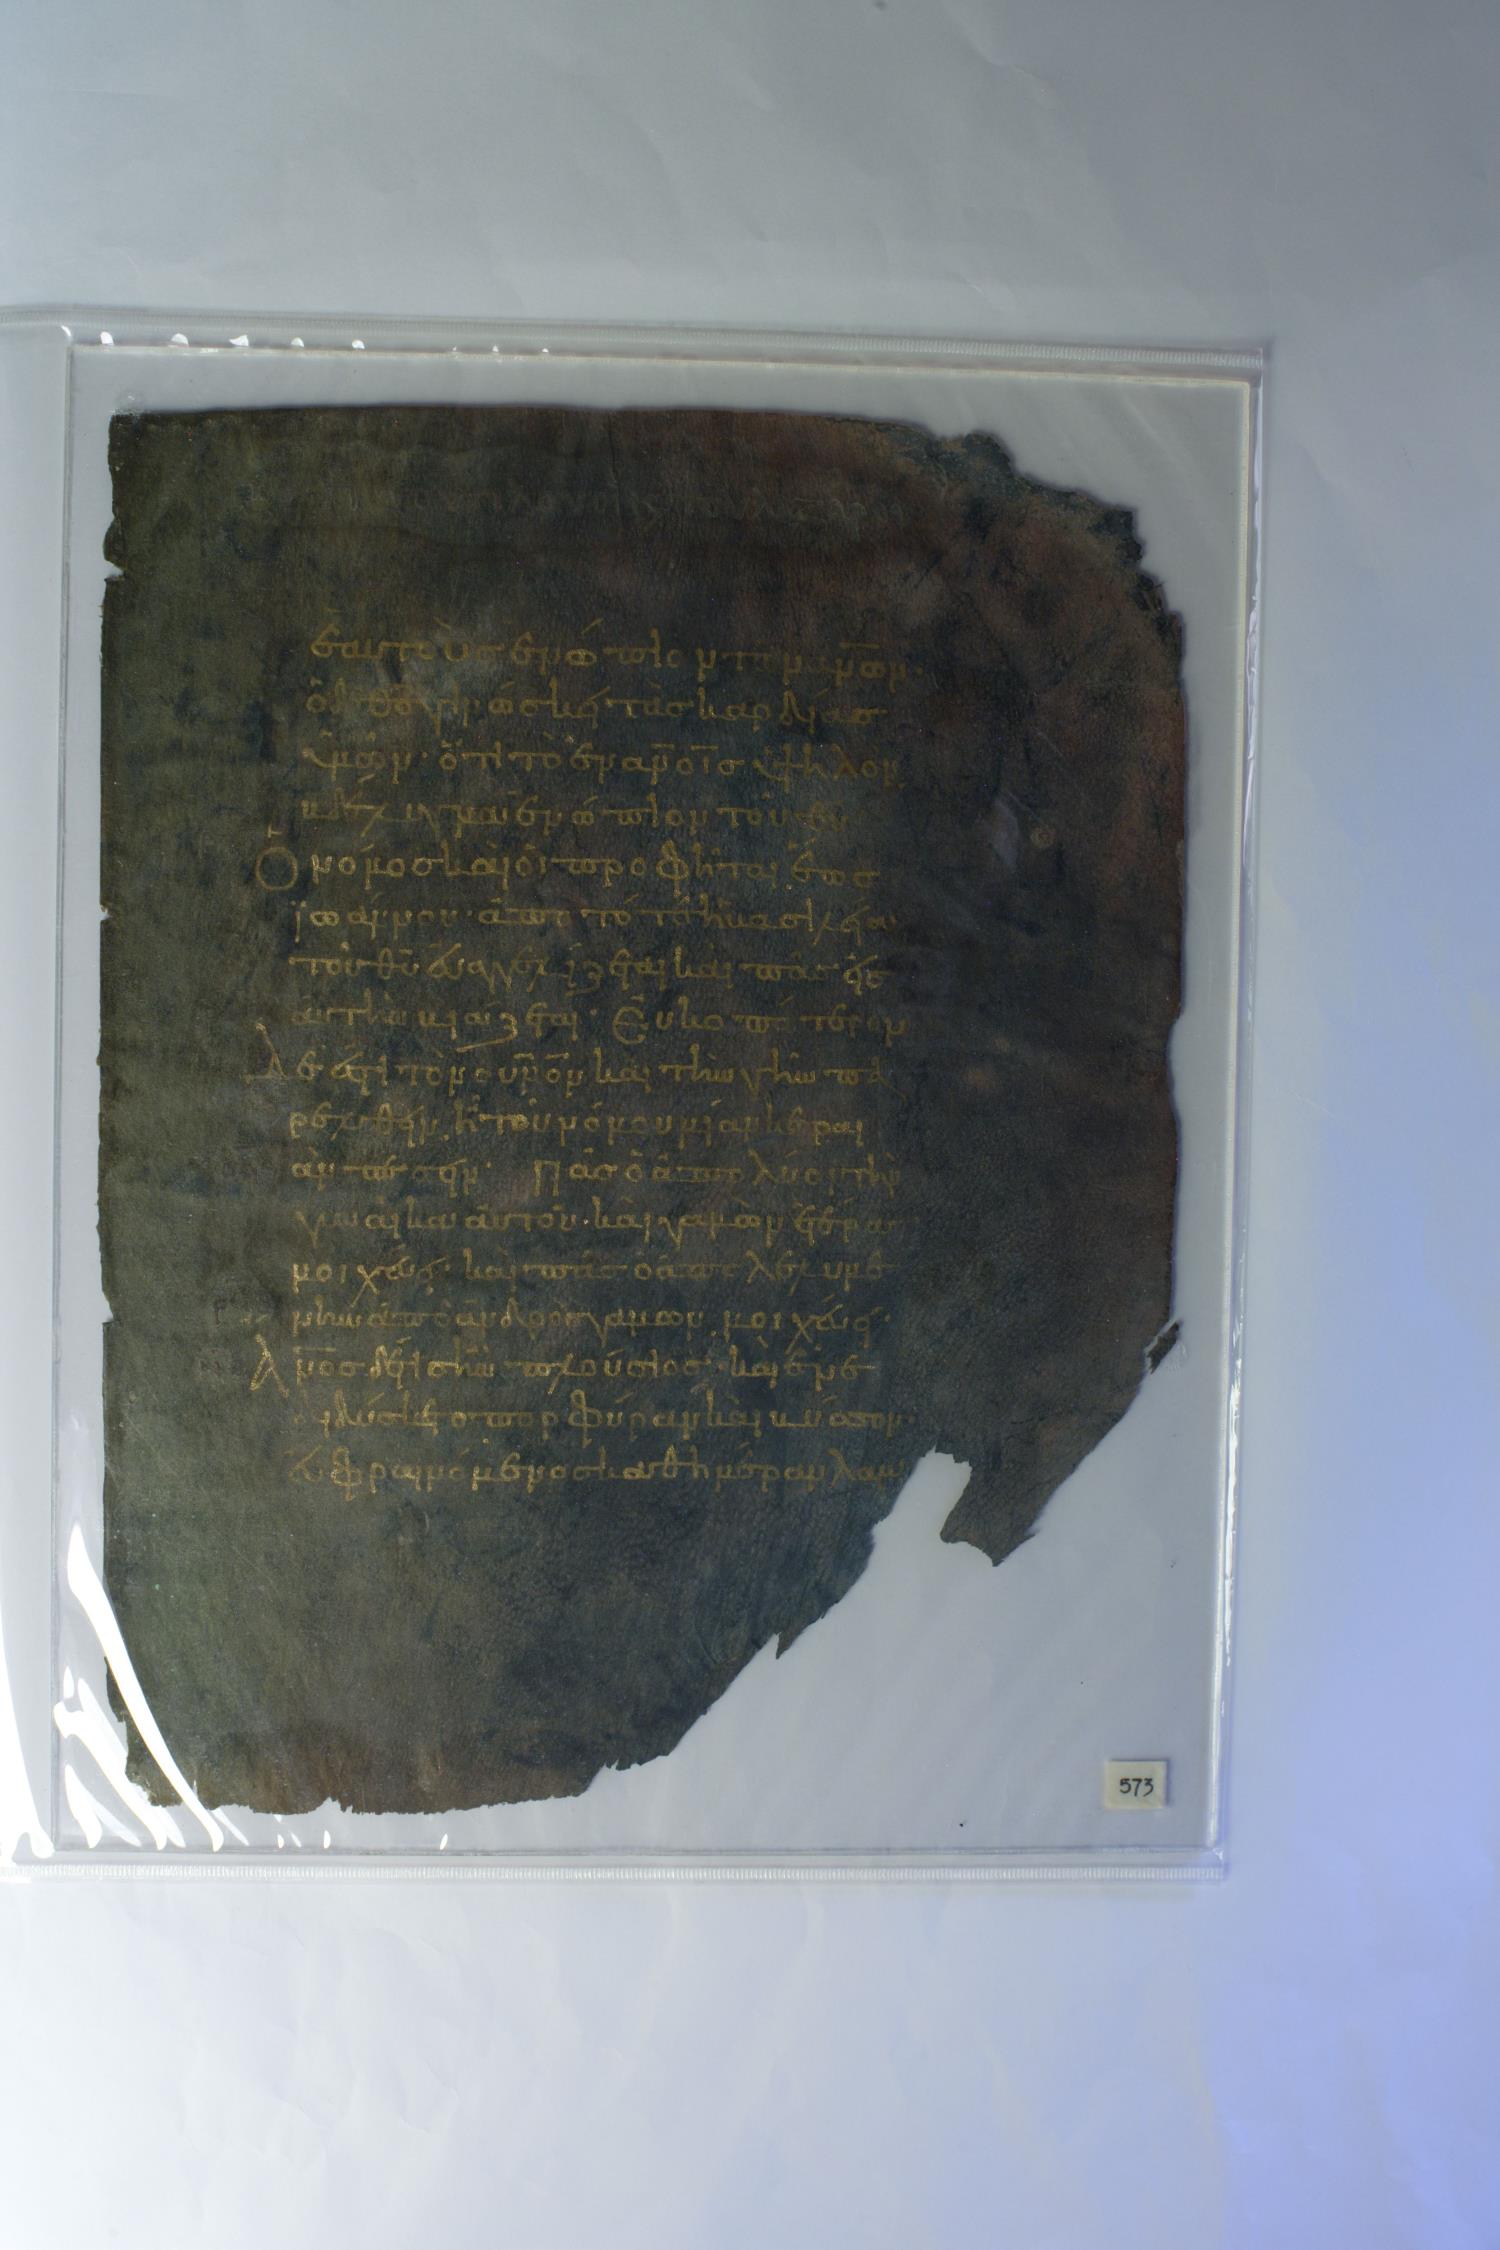 ἑαυτοὺς ἐνώπιον τῶν ἀν̅ω̅ν·
ὁ δὲ θ̅ς̅ γινώσκει τὰς καρδίας
ὑμῶν· ὅτι τὸ ἐν αν̅οι̅ς ὑψηλὸν
βδέλυγμα ἐνώπιον τοῦ θ̅υ̅
Ὁ νόμος καὶ οἱ προφῆται ἕως
ϊωάννου· ἀπὸ τότε ἡ βασιλεία
τοῦ θ̅υ̅ εὐαγγελίζεται καὶ πᾶς εἰς
αὐτὴν βιάζεται· Εὐκοπώτερον
δέ ἐστι τὸν ου̅νο̅ν καὶ τὴν γῆν πα
ρελθεῖν, ἢ τοῦ νόμου μίαν κεραί
αν πεσεῖν· Πᾶς ὁ ἀπολύων τὴν
γυναῖκα αὐτοῦ· καὶ γαμῶν ἑτέραν
μοιχεύει· καὶ πᾶς ὁ ἀπολελυμέ
νην ἀπὸ ἀνδρὸς γαμῶν, μοιχεύει·
Αν̅ο̅ς δέ τις ἦν πλούσιος· καὶ ἐνε
διδύσκετο πορφύραν καὶ βύσσον·
εὐφραινόμενος καθημέραν λαμ
573